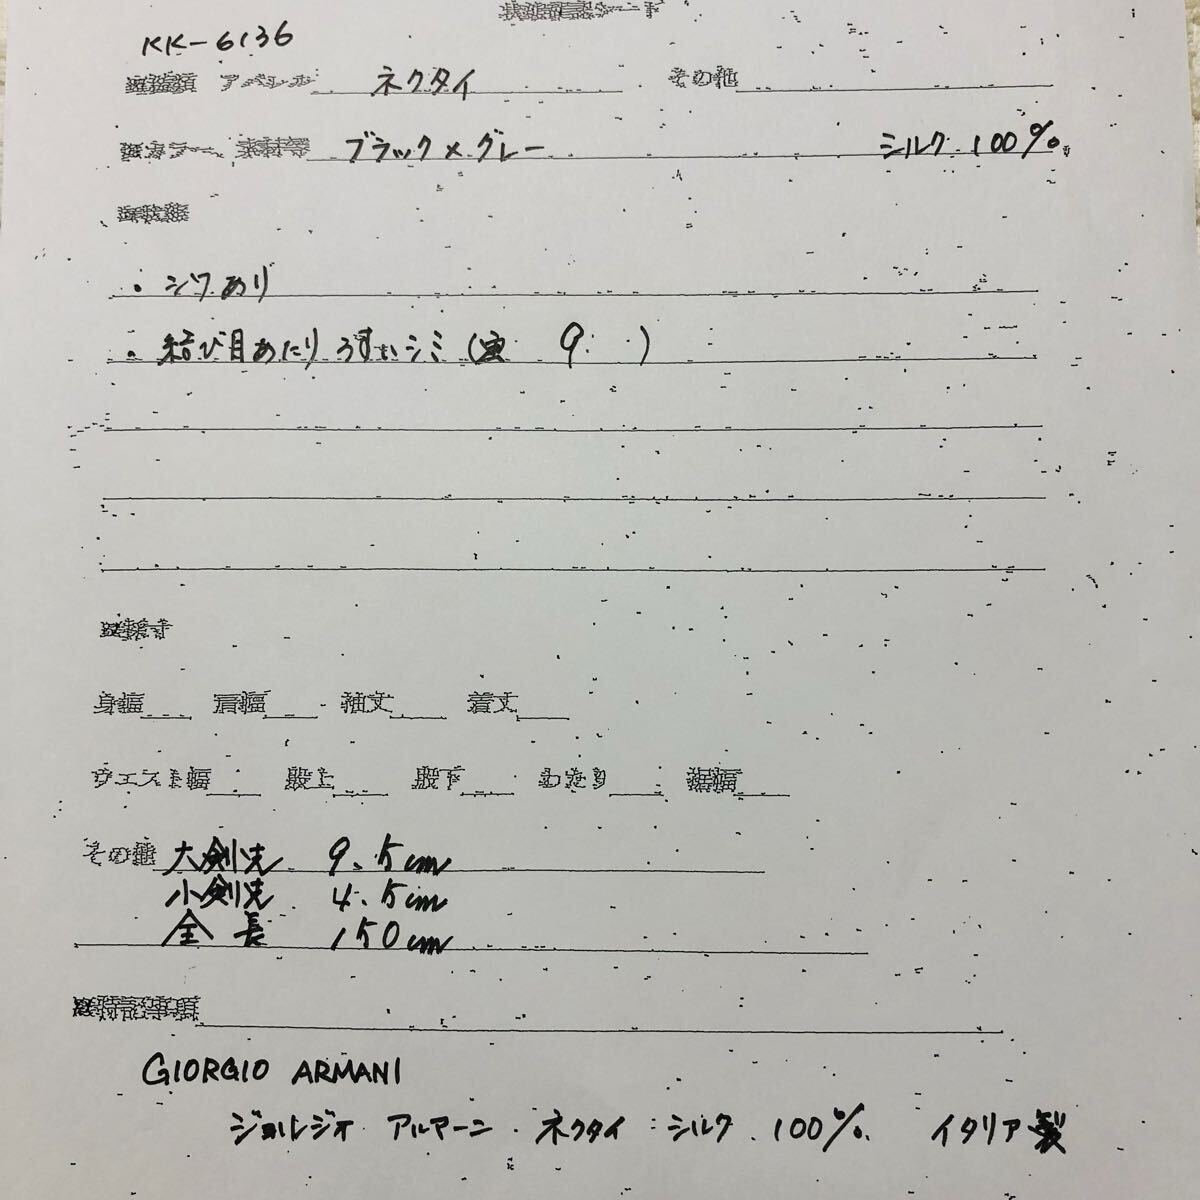 KK-6136
アパレル ネクタイ その他
カラー 素材等 ブラック×グレー シルク 100%
・シワあり
・結び目あたり うすいシミ( 9 )
身幅 肩幅 袖丈 着丈
ウエスト幅 股上 股下 わたり 裾幅
その他 大剣先 9.5cm
小剣先 4.5cm
全長 150cm
特記事項
GIORGIO ARMANI
ジョルジオ アルマーニ ネクタイ シルク 100% イタリア製